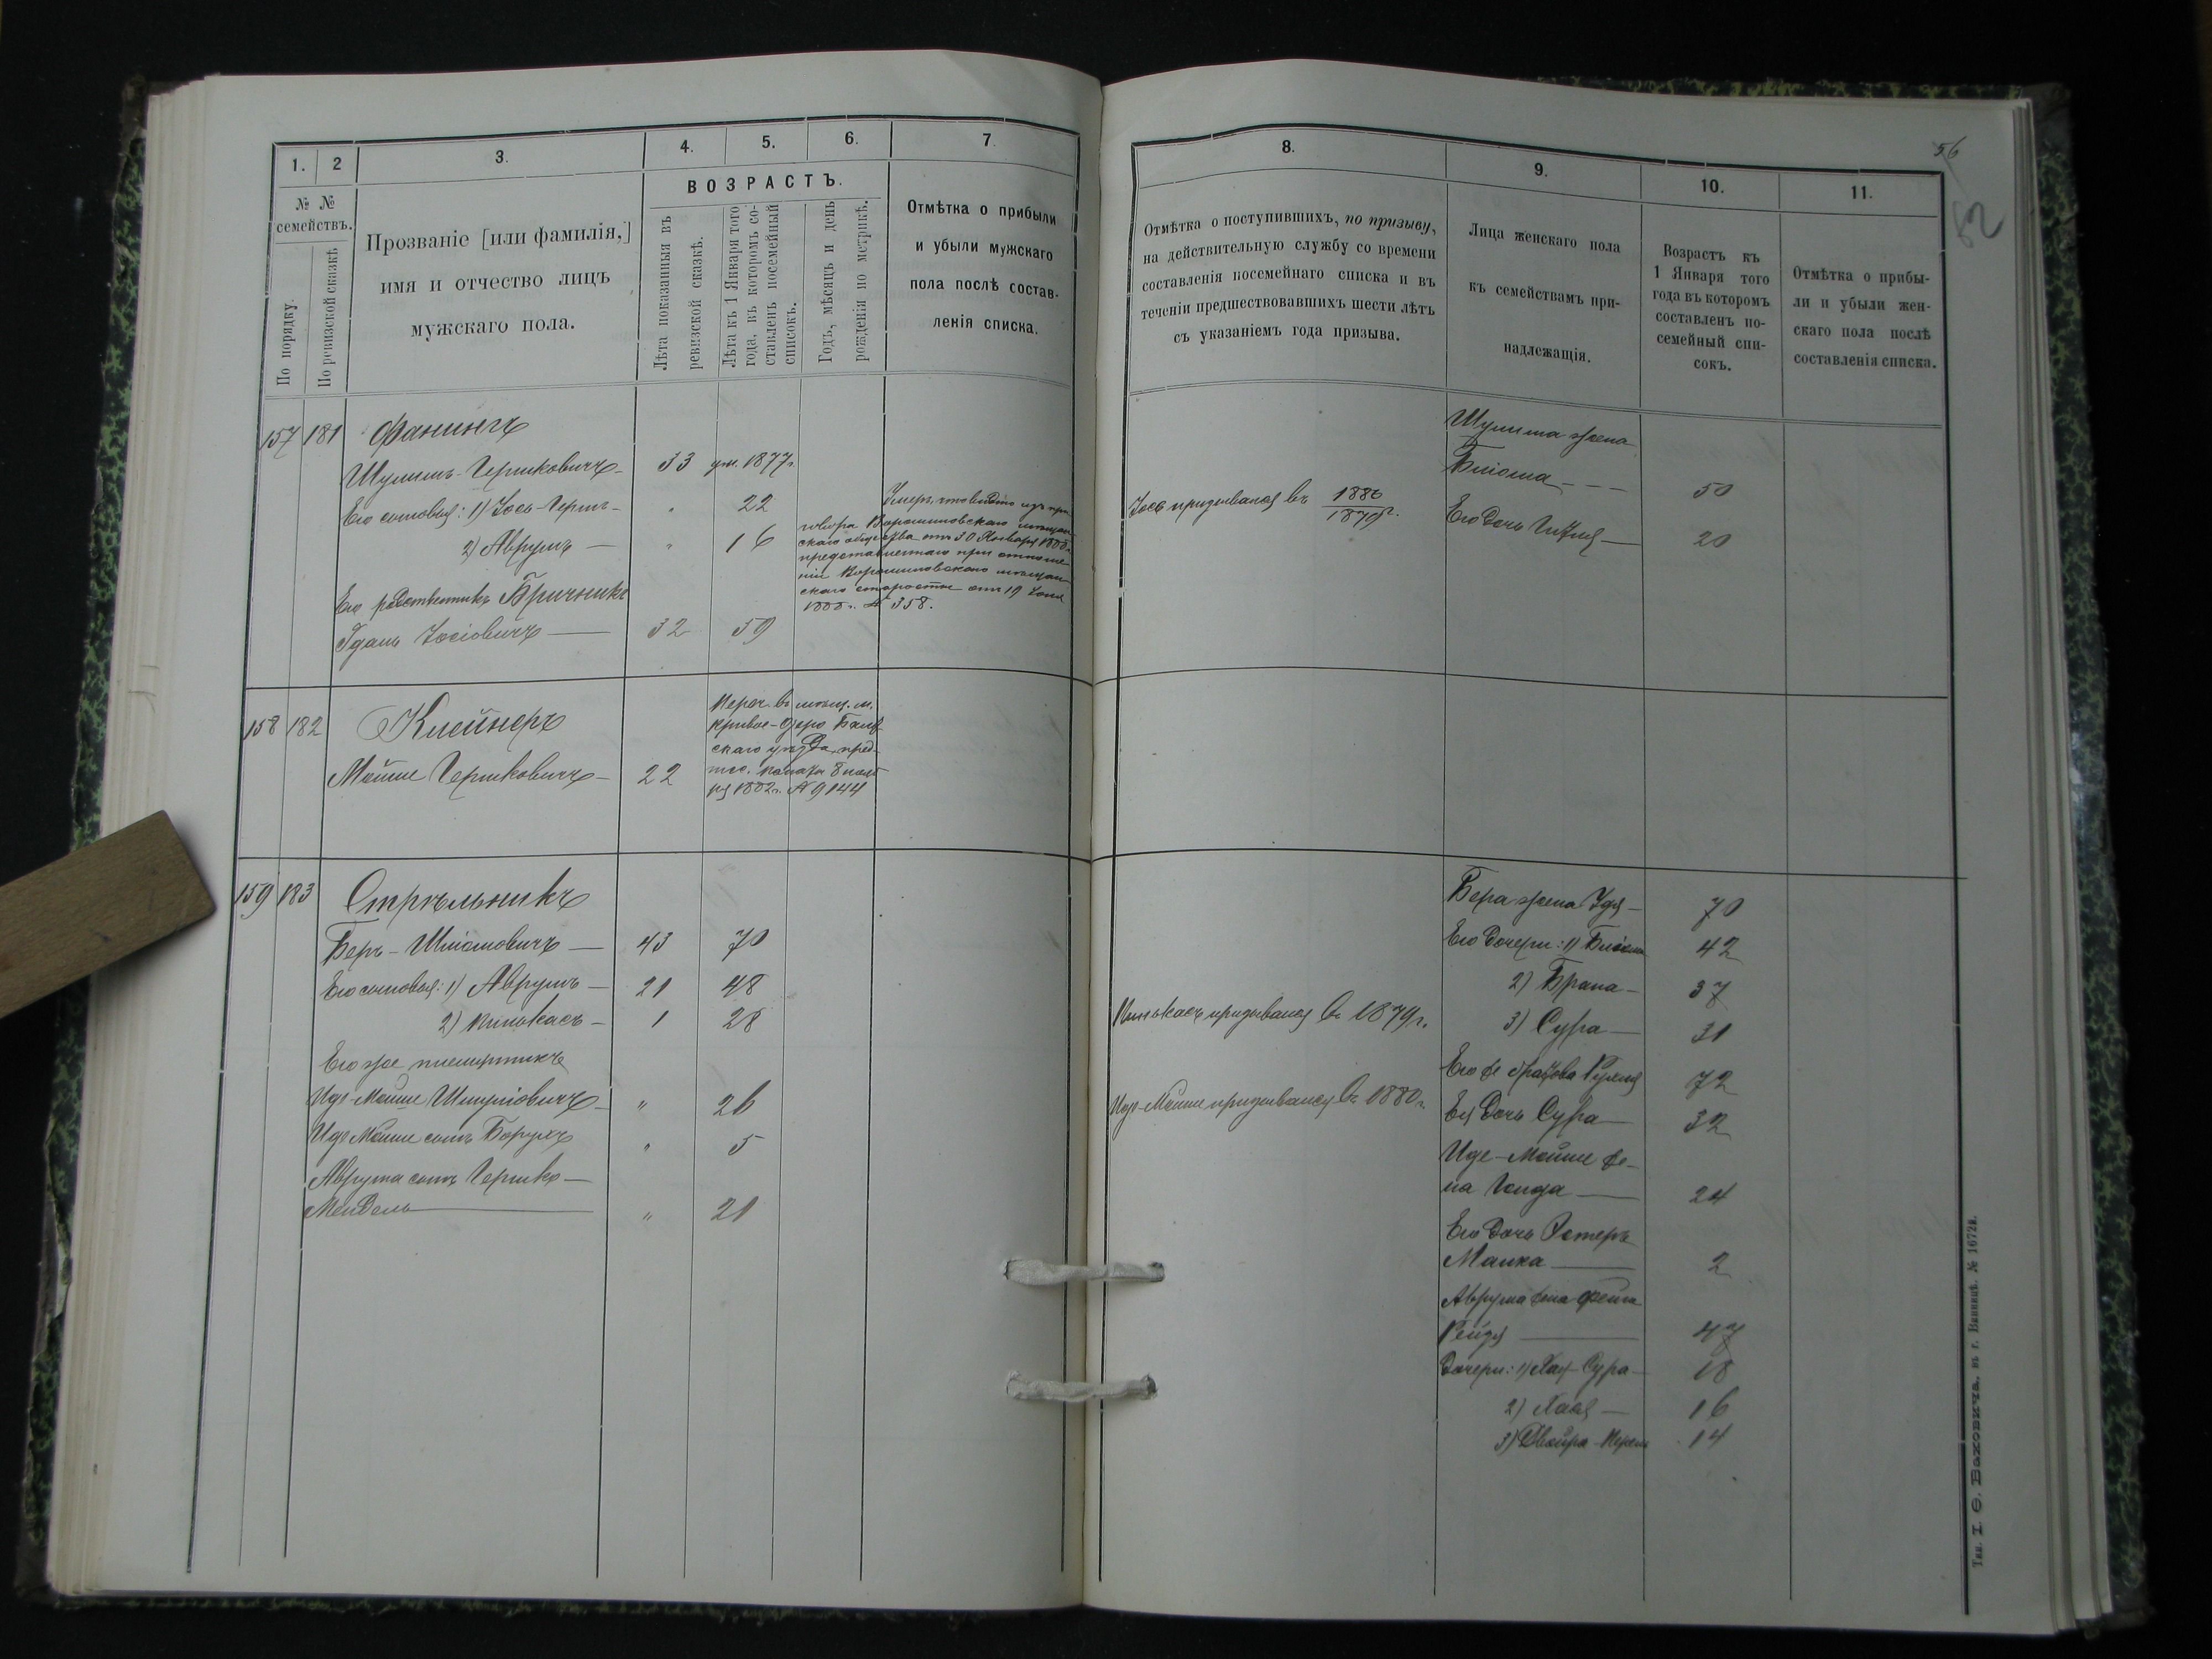 1. 2 3. 4. 5. 6. 7.
№ №
семействъ.
По порядку.
По ревизской сказкѣ.
Прозваніе [или фамилія,]
имя и отчество лицъ
мужскаго пола.
ВОЗРАСТЪ.
Лѣта показанныя въ
ревизской сказкѣ.
Лѣта къ 1 Января того
года, въ которомъ со-
ставленъ посемейный
списокъ.
Годъ, мѣсяцъ и день
рожденія по метрикѣ.
Отмѣтка о прибыли
и убыли мужскаго
пола послѣ состав-
ленія списка.
157 181 Фанингъ
Шулимъ Гершковичъ - 33 ум. 1877 г.
Его сыновья: 1) Іось-Гершъ - " 22
2) Аврумъ — " 16
Умеръ, что видно изъ при-
говора Ворошиловскаго мѣщан-
скаго общества отъ 30 Января 1888 г.
представленнаго при отноше-
ніи Ворошиловскаго мѣщан-
скаго старосты отъ 19
1888 г. № 358.
Его родственникъ Бричникъ
Іосіовичъ — 32 59
158 182 Клейнеръ
Мойше Гершковичъ - 22
Переч. въ мѣщ. м.
Кривое-Озеро Балт-
скаго уѣзда, пред-
пис. палаты 8 нояб-
ря 1882 г. № 9144
159 183 Стрѣльникъ
Беръ - Шліомовичъ — 43 70
Его сыновья: 1) Аврумъ — 21 48
2) Пинькасъ - 1 28
Его же племянникъ
Иде-Мойше Шмуліовичъ - " 26
Иде Мойше сынъ Борухъ " 5
Аврума сынъ Гершко —
Мендель — " 21
56
52
8. 9. 10. 11.
Отмѣтка о поступившихъ, по призыву,
на дѣйствительную службу со времени
составленія посемейнаго списка и въ
теченіи предшествовавшихъ шести лѣтъ
съ указаніемъ года призыва.
Лица женскаго пола
къ семействамъ при-
надлежащія.
Возрастъ къ
1 Января того
года въ которомъ
составленъ по-
семейный спи-
сокъ.
Отмѣтка о прибы-
ли и убыли жен-
скаго пола послѣ
составленія списка.
Шулима жена
Бліома - - - 50
Іось призывался въ 1880/1879 г.
Его дочь — 20
Бера жена Удя - 70
Его дочери: 1) Бліома 42
2) Брана - 37
Пинькасъ призывался въ 1879 г.
3) Сура — 31
Его же братова Рухля 72
Иде-Мойше призывался въ 1880 г.
Ея дочь Сура — 32
Иде - Мойше же-
на Голда — 24
Его дочь Эстеръ
Малка — 2
Аврума жена Фейга
Рейзя — 47
Дочери: 1) Хая-Сура - 18
2) Хава — 16
3) Двойра - Перля 14
Тип. І. Ѳ. Баховича, въ г. Винницѣ. № 16728.